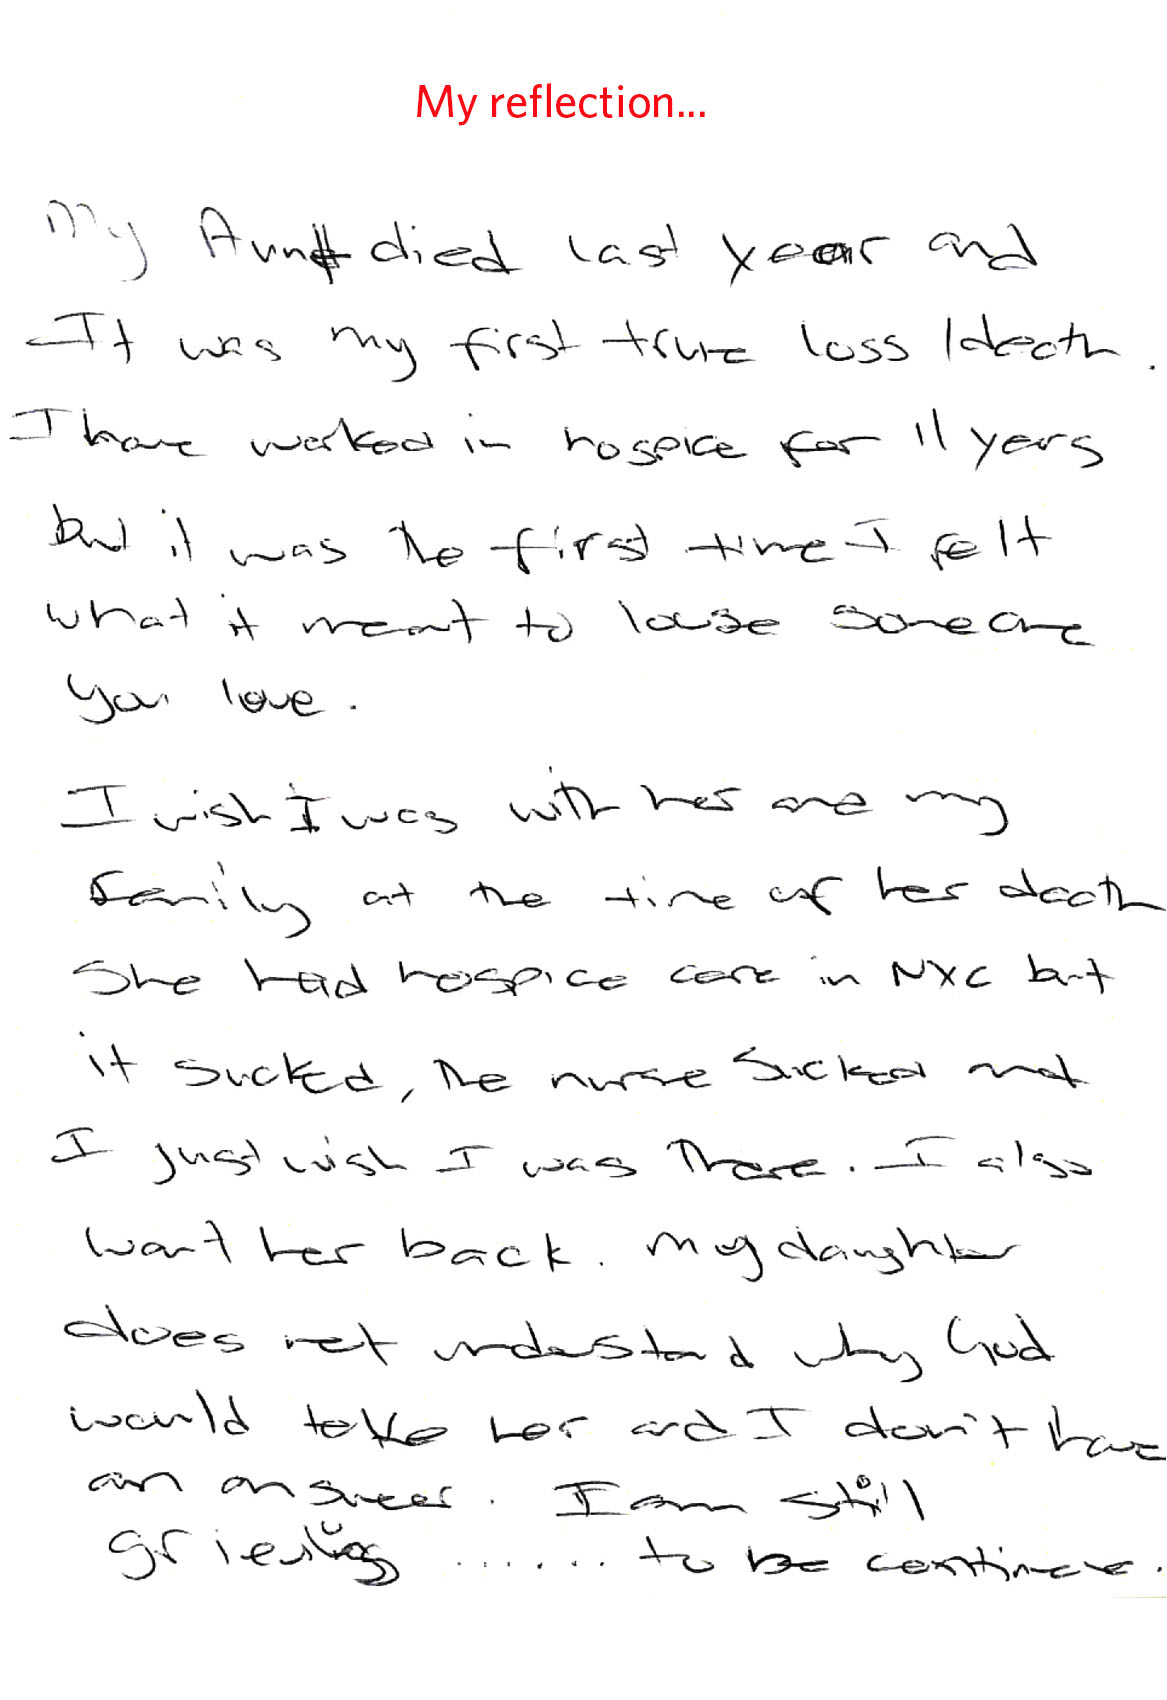 My reflection...
My Aunt died last year and
It was my first true loss/death.
I have worked in hospice for 11 years
but it was the first time I felt
what it meant to louse someone
you love.
I wish I was with her and my
family at the time of her death
She had hospice care in NYC but
it sucked, the nurse sucked and
I just wish I was there. I also
want her back. my daughter
does not understand why God
would take her and I don't have
an answer. I am still
grieving ....... to be continue.